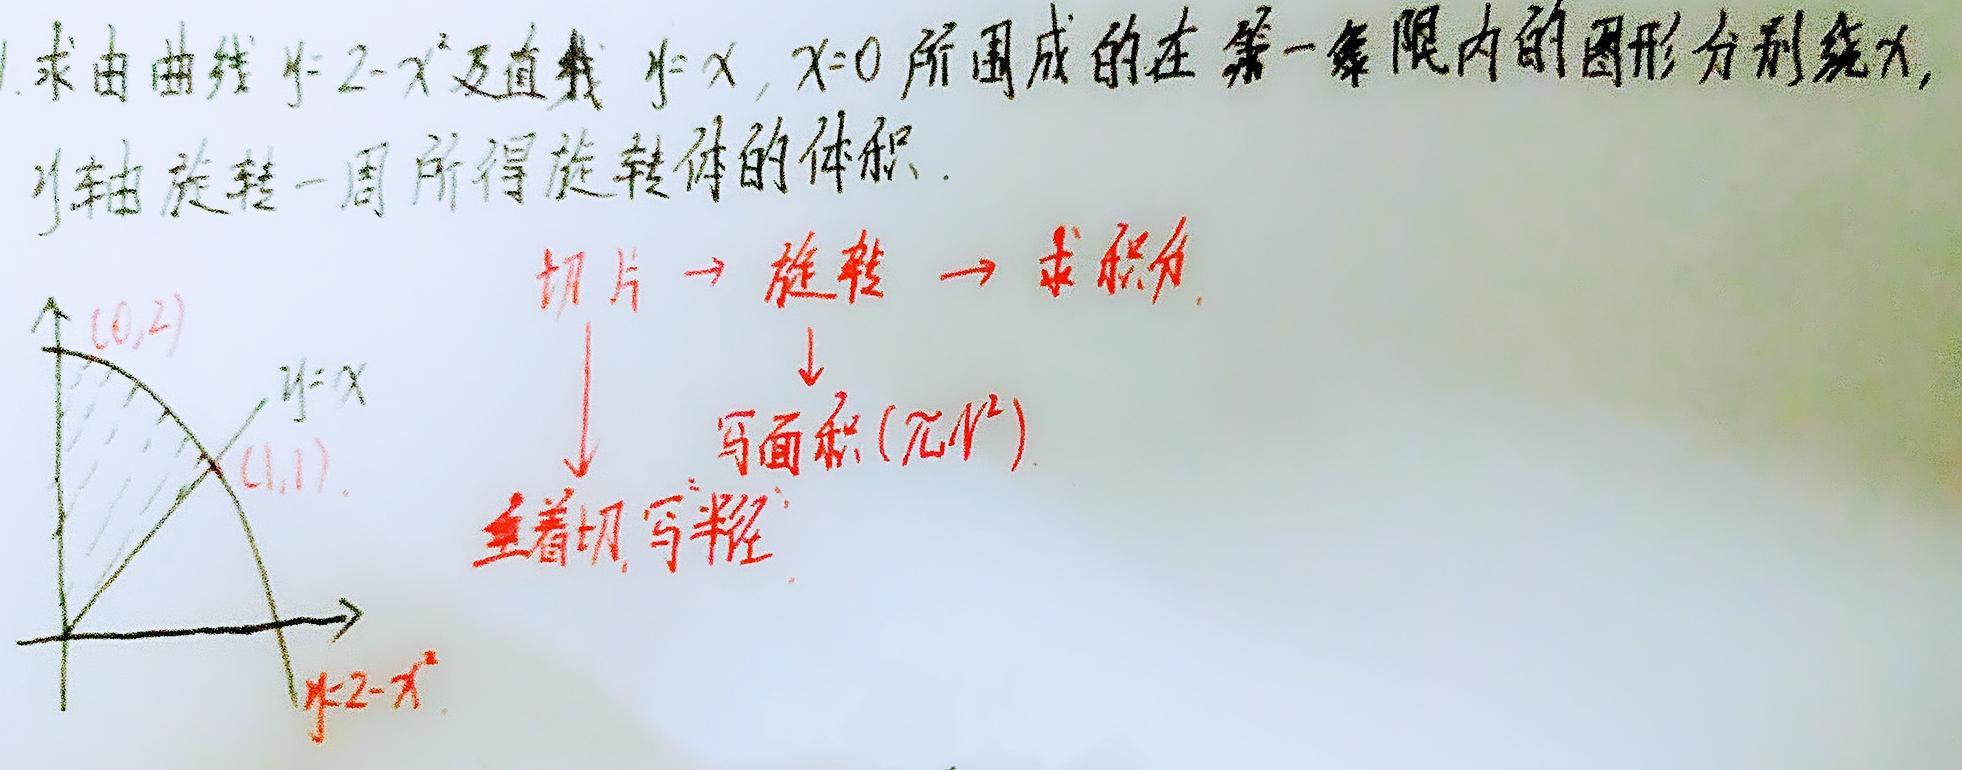 1.求由曲线 y=2-x²及直线 y=x, x=0 所围成的在第一象限内的图形分别绕x,
y轴旋转一周所得旋转体的体积.
切片 → 旋转 → 求积分.
(0,2)
y=x
写面积(πr²).
(1,1).
垂着切,写"半径".
y=2-x².